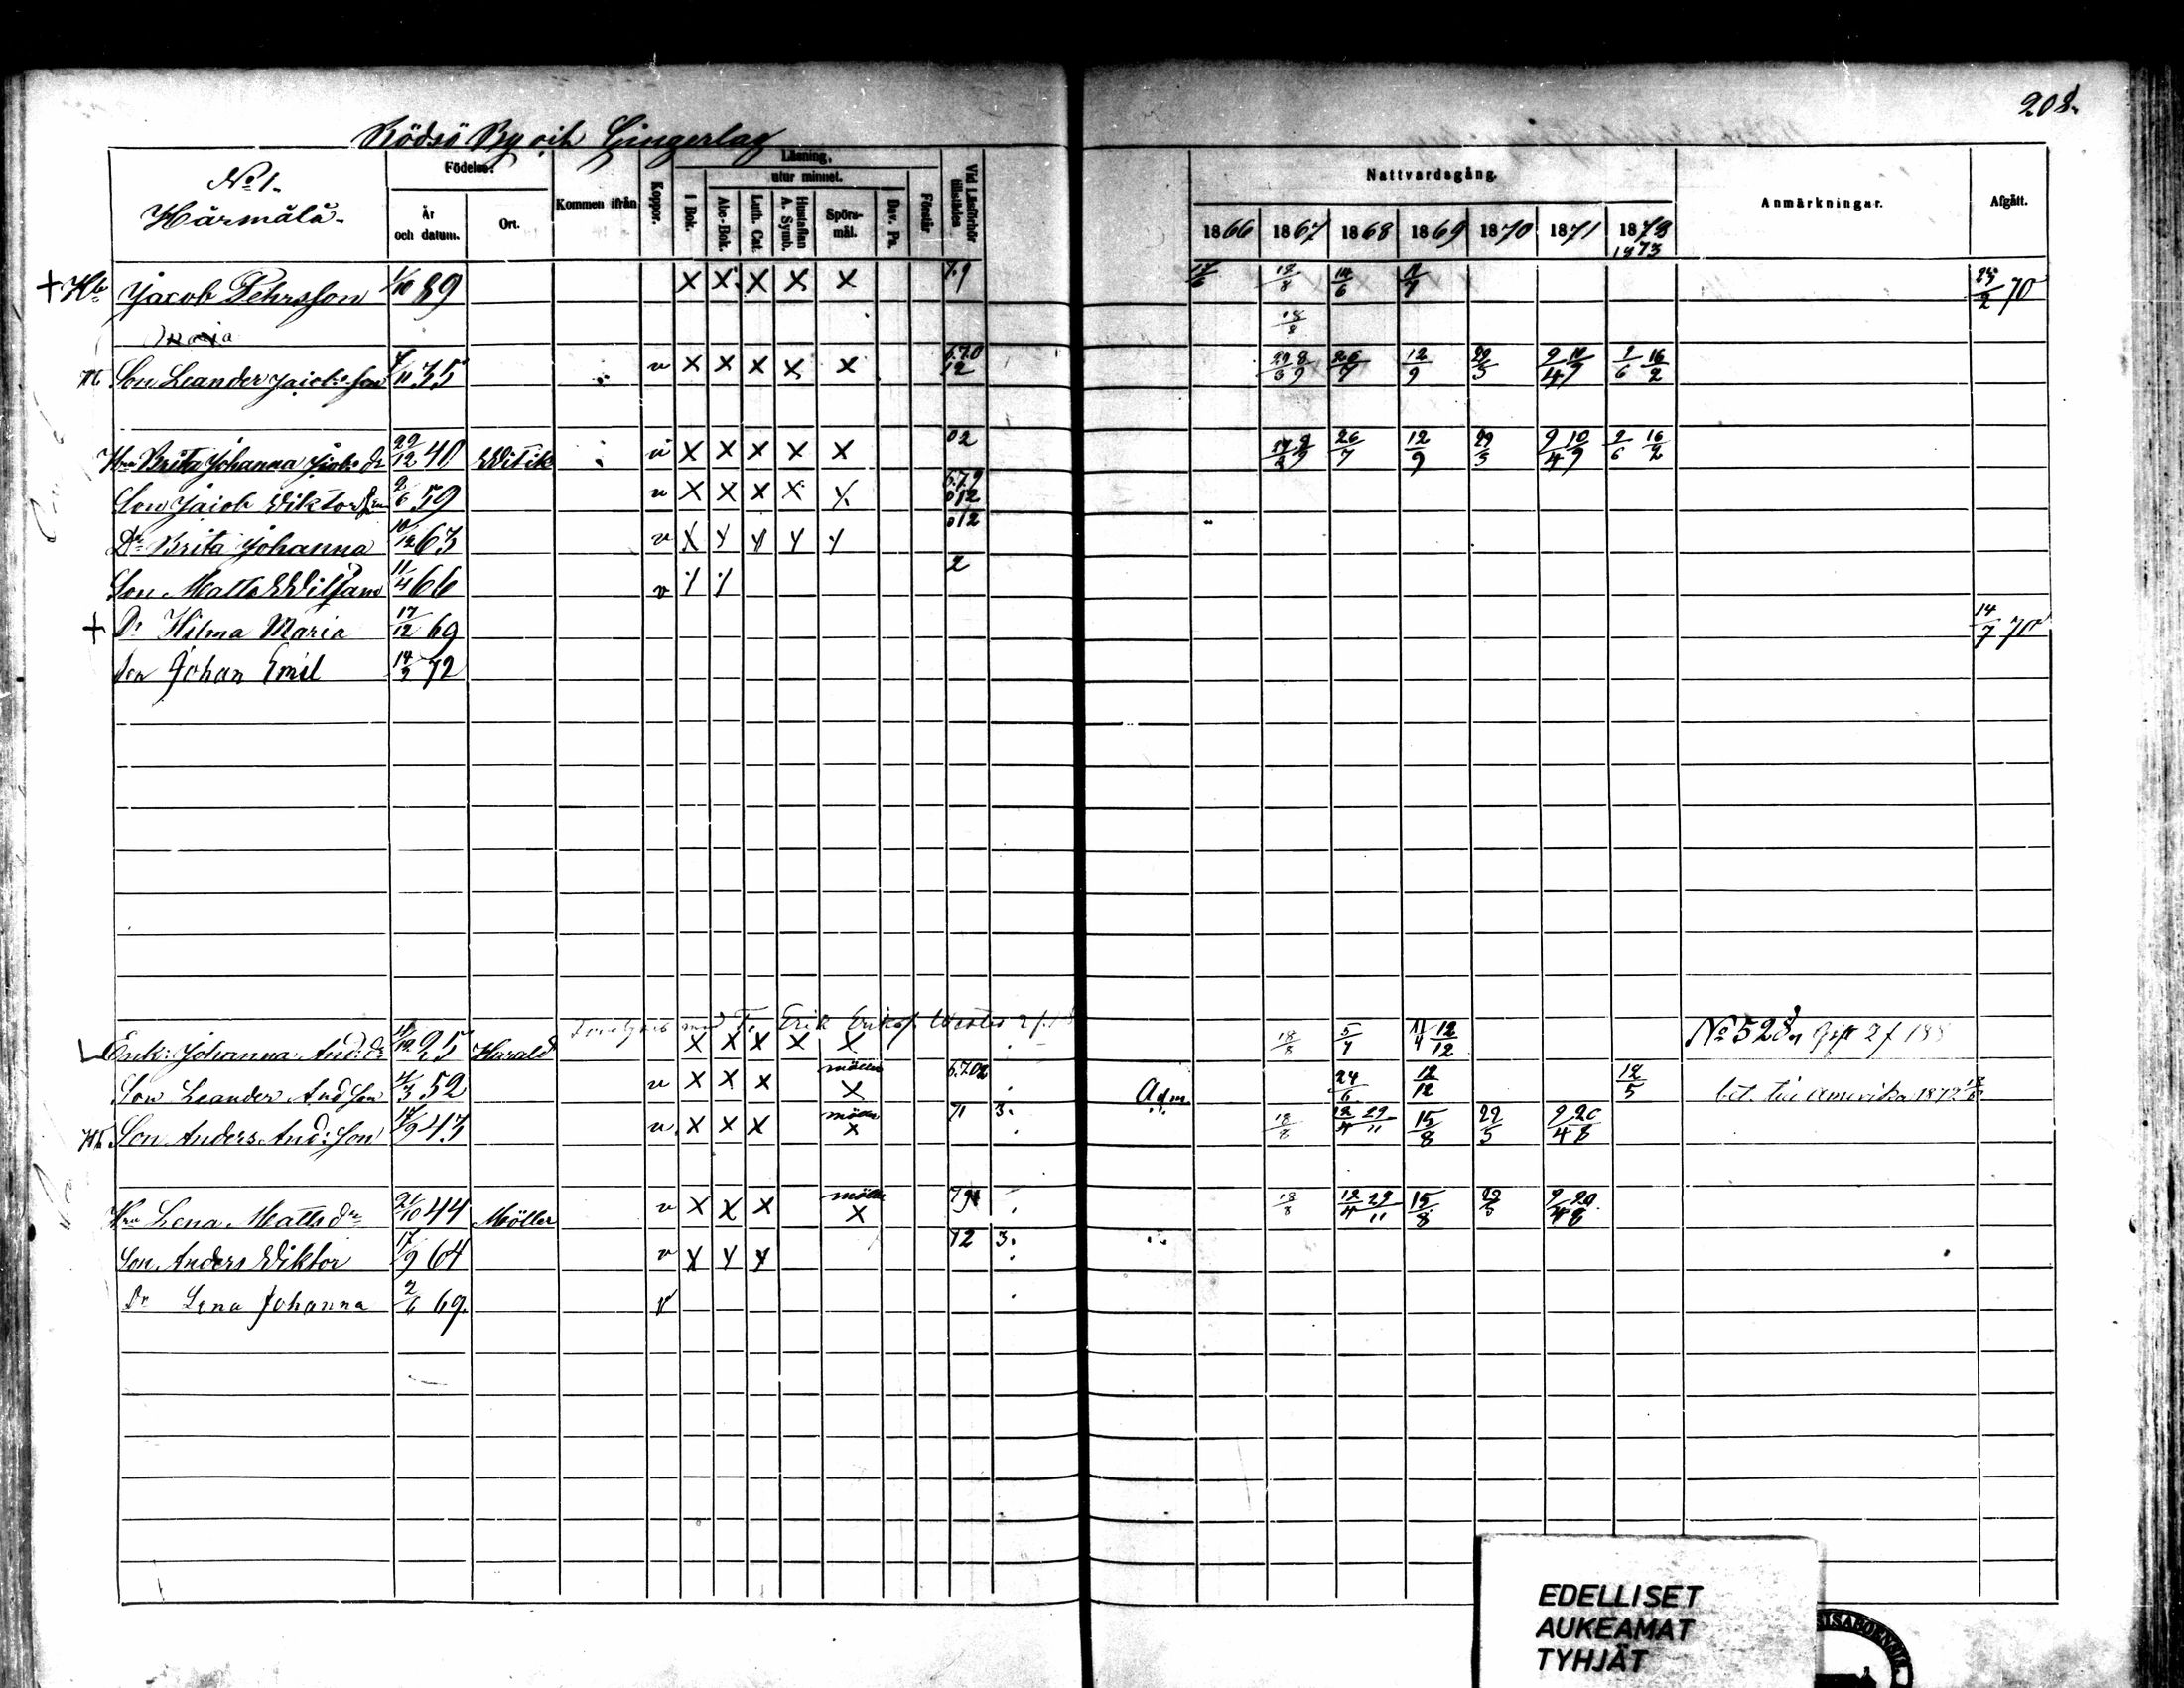 208.
Rödsö By och Gingerlag
No 1.
Härmälä.
Födelse.
År och datum.
Ort.
Kommen ifrån
Koppor.
Läsning,
utur minnet.
I Bok.
Abc-Bok.
Luth. Cat.
Hustaflan A. Symb.
Spörsmål.
Dav. Ps.
Förstår
Vid Läsförhör tillstädes
Nattvardsgång.
1866 1867 1868 1869 1870 1871 1872
1873
Anmärkningar.
Afgått.
+ Hb Jacob Pehrsson 1/10 89 X X X X X 7.9 17/6 18/8 14/6 23/2 70
Maria 18/8
Son Leander Jacobsson 35 v X X X X X 6.7.0 12 26/7 12/9 29/5 2/4 10/9 2/6 16/2
Hru Brita Johanna Jacobs dr 29/12 40 Witik v X X X X X 02 26/7 12/9 29/5 2/4 10/9 2/6 16/2
Son Jacob Wiktor 2/6 59 v X X X X X 6.7.9 012
Dr Brita Johanna 10/12 63 v X X X X X 012
Son Matts Wiljam 11/4 66 v 2
+ Dr Hilma Maria 17/12 69 14/7 70
Son Johan Emil 14/3 72
Erik Eriks. Wester
Enk: Johanna And: dr 25 Harald X X X X X 18/8 5/7 12/12 No 528 Gift
Son Leander And son 4/3 52 v X X X möller X 6.702 Adm. 24/6 12/12 12/5 bet. till Amerika 1872
Son Anders And: son 17/9 43 v X X X möller X 71 3. 18/8 12/4 29/11 15/8 29/5 2/4 20/8
Hru Lena Matts dr 21/10 44 Möller v X X X möller X 18/8 12/4 29/11 15/8 29/5 2/4 20/8
Son Anders Wiktor 17/9 64 v X X X 72 3.
Dr Lena Johanna 2/6 69 v
EDELLISET
AUKEAMAT
TYHJÄT